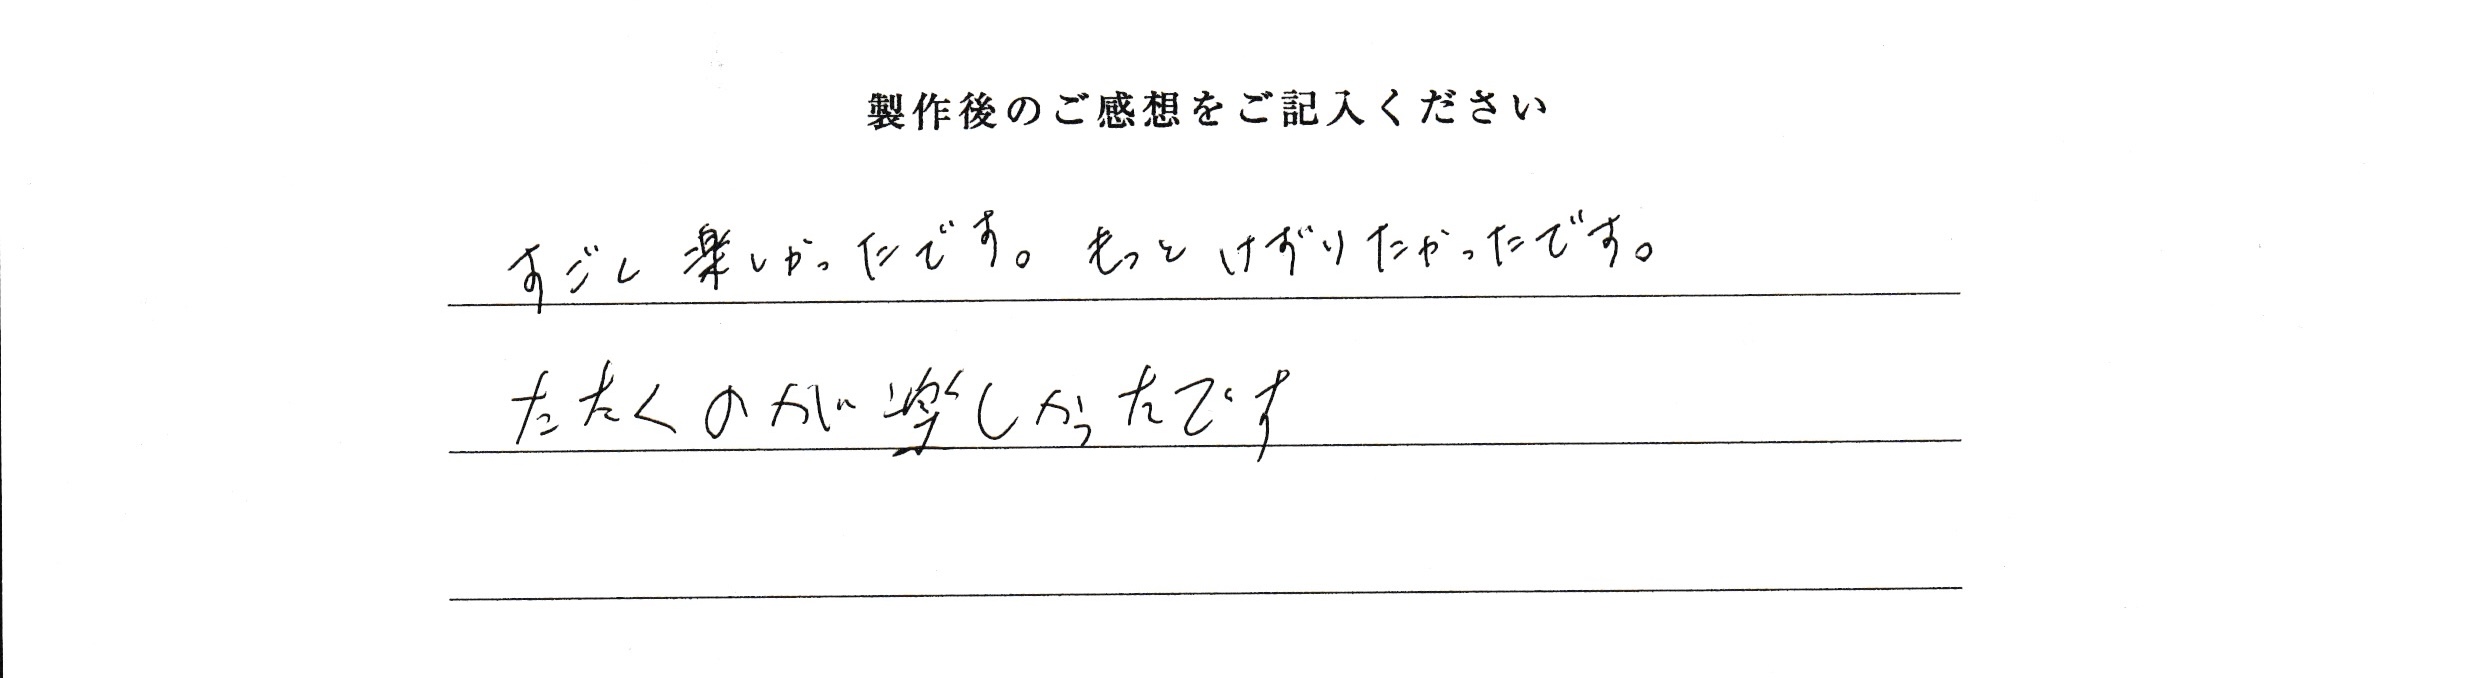 製作後のご感想をご記入ください
すごし楽しかったです。もっとけずりたかったです。
たたくのが楽しかったです